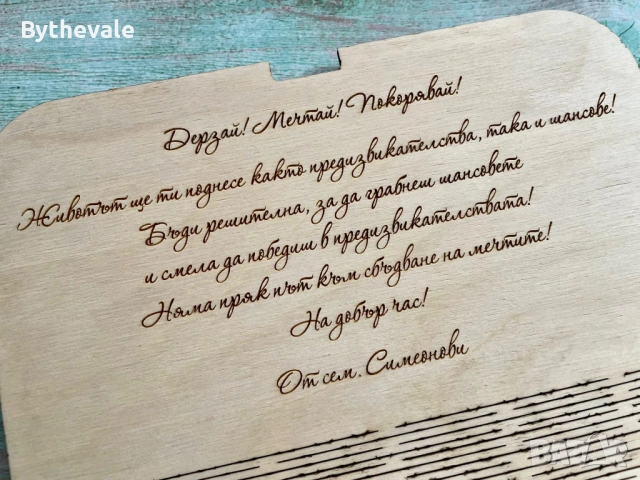 Bythevale
Дерзай! Мечтай! Покорявай!
Животът ще ти поднесе както предизвикателства, така и шансове!
Бъди решителна, за да грабнеш шансовете
и смела да победиш в предизвикателствата!
Няма пряк път към сбъдване на мечтите!
На добър час!
От сем. Симеонови
BAZAR